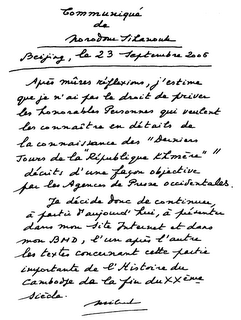 Communiqué
de
Norodom Sihanouk
Beijing, le 23 Septembre 2006
Après mûres réflexions, j'estime
que je n'ai pas le droit de priver
les honorables Personnes qui veulent
les connaître en détails de
la connaissance des "Derniers
Jours de la "République Khmère""
décrits d'une façon objective
par les Agences de Presse occidentales.
Je décide donc de continuer,
à partir d'aujourd'hui, à présenter
dans mon Site Internet et dans
mon BMD, l'un après l'autre
les textes concernant cette partie
importante de l'Histoire du
Cambodge de la fin du XXème
siècle.